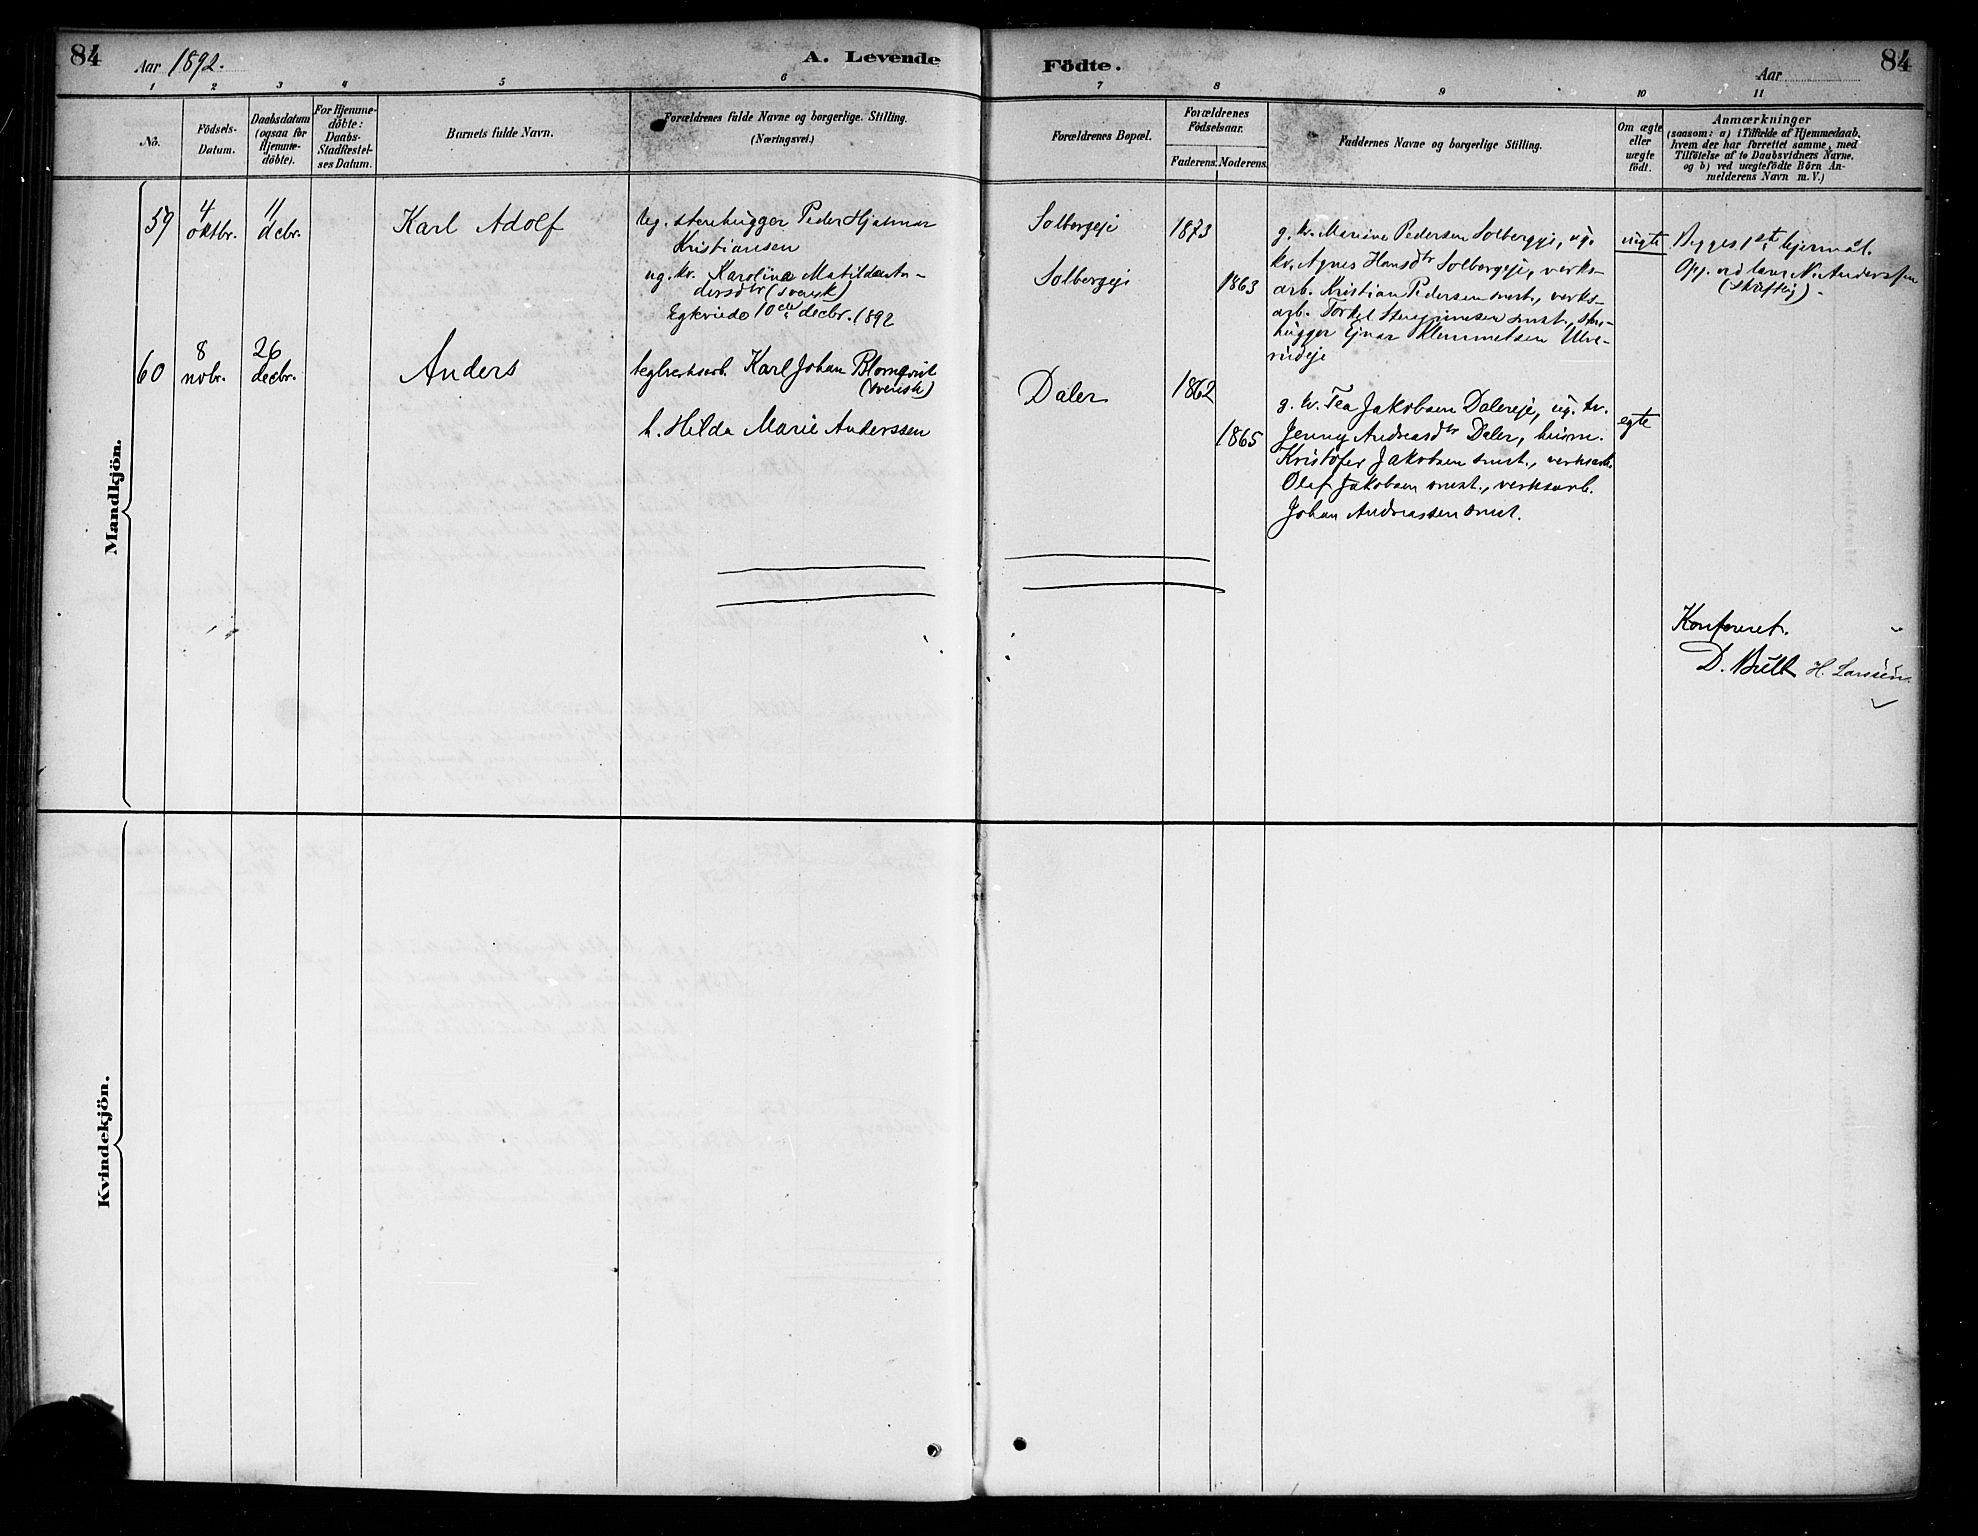 84
Aar 1892.
A. Levende Födte.
Aar
84
1 2 3 4 5 6 7 8 9 10 11
No.
Födsels-
Datum.
Daabsdatum
(ogsaa for
Hjemme-
döbte).
For Hjemme-
döbte:
Daabs-
Stadfæstel-
ses Datum.
Barnets fulde Navn.
Forældrenes fulde Navne og borgerlige Stilling.
(Næringsvei.)
Forældrenes Bopæl.
Forældrenes
Födselsaar.
Faderens. Moderens.
Faddernes Navne og borgerlige Stilling.
Om ægte
eller
uægte
födt.
Anmærkninger
(saasom: a) i Tilfælde af Hjemmedaab,
hvem der har forrettet samme, med
Tilföielse af to Daabsvidners Navne,
og b) ved uægtefödte Börn An-
melderens Navn m. V.)
Mandkjön.
59
4
oktbr.
11
debr.
Karl Adolf
Ug. stenhugger Peder Hjalmar
Kristiansen
ug. kv. Karolina Matilda An-
dersdtr (svensk)
Egteviede 10de decbr. 1892
Solbergeje
Solbergeje
1873
1863
g. kv. Marine Pedersen Solbergeje, ug.
kv. Agnes Hansdtr Solbergeje, verks-
arb. Kristian Pedersen smst., verks-
arb. Torkel smst., sten-
hugger Ejnar Klemmetsen Ulve-
rudeje
uegte
Begges 1ste lejermål.
Opg. ved N. Anderssen
(skriftlig).
60
8
nobr.
26
decbr.
Anders
teglverksarb. Karl Johan Blomqvist
(svensk)
h. Hilda Marie Anderssen
Daler
1862
1865
g. kv. Tea Jakobsen Dalereje, ug. kv.
Jenny Andreasdtr Daler, husm.
Kristofer Jakobsen smst., verksarb.
Olaf Jakobsen smst., verksarb.
Johan Andreassen smst.
egte
Konfereret.
D. Bull H. Larssen.
Kvindekjön.